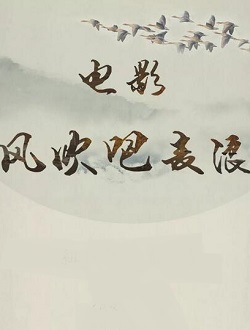 电影
风吹吧麦浪